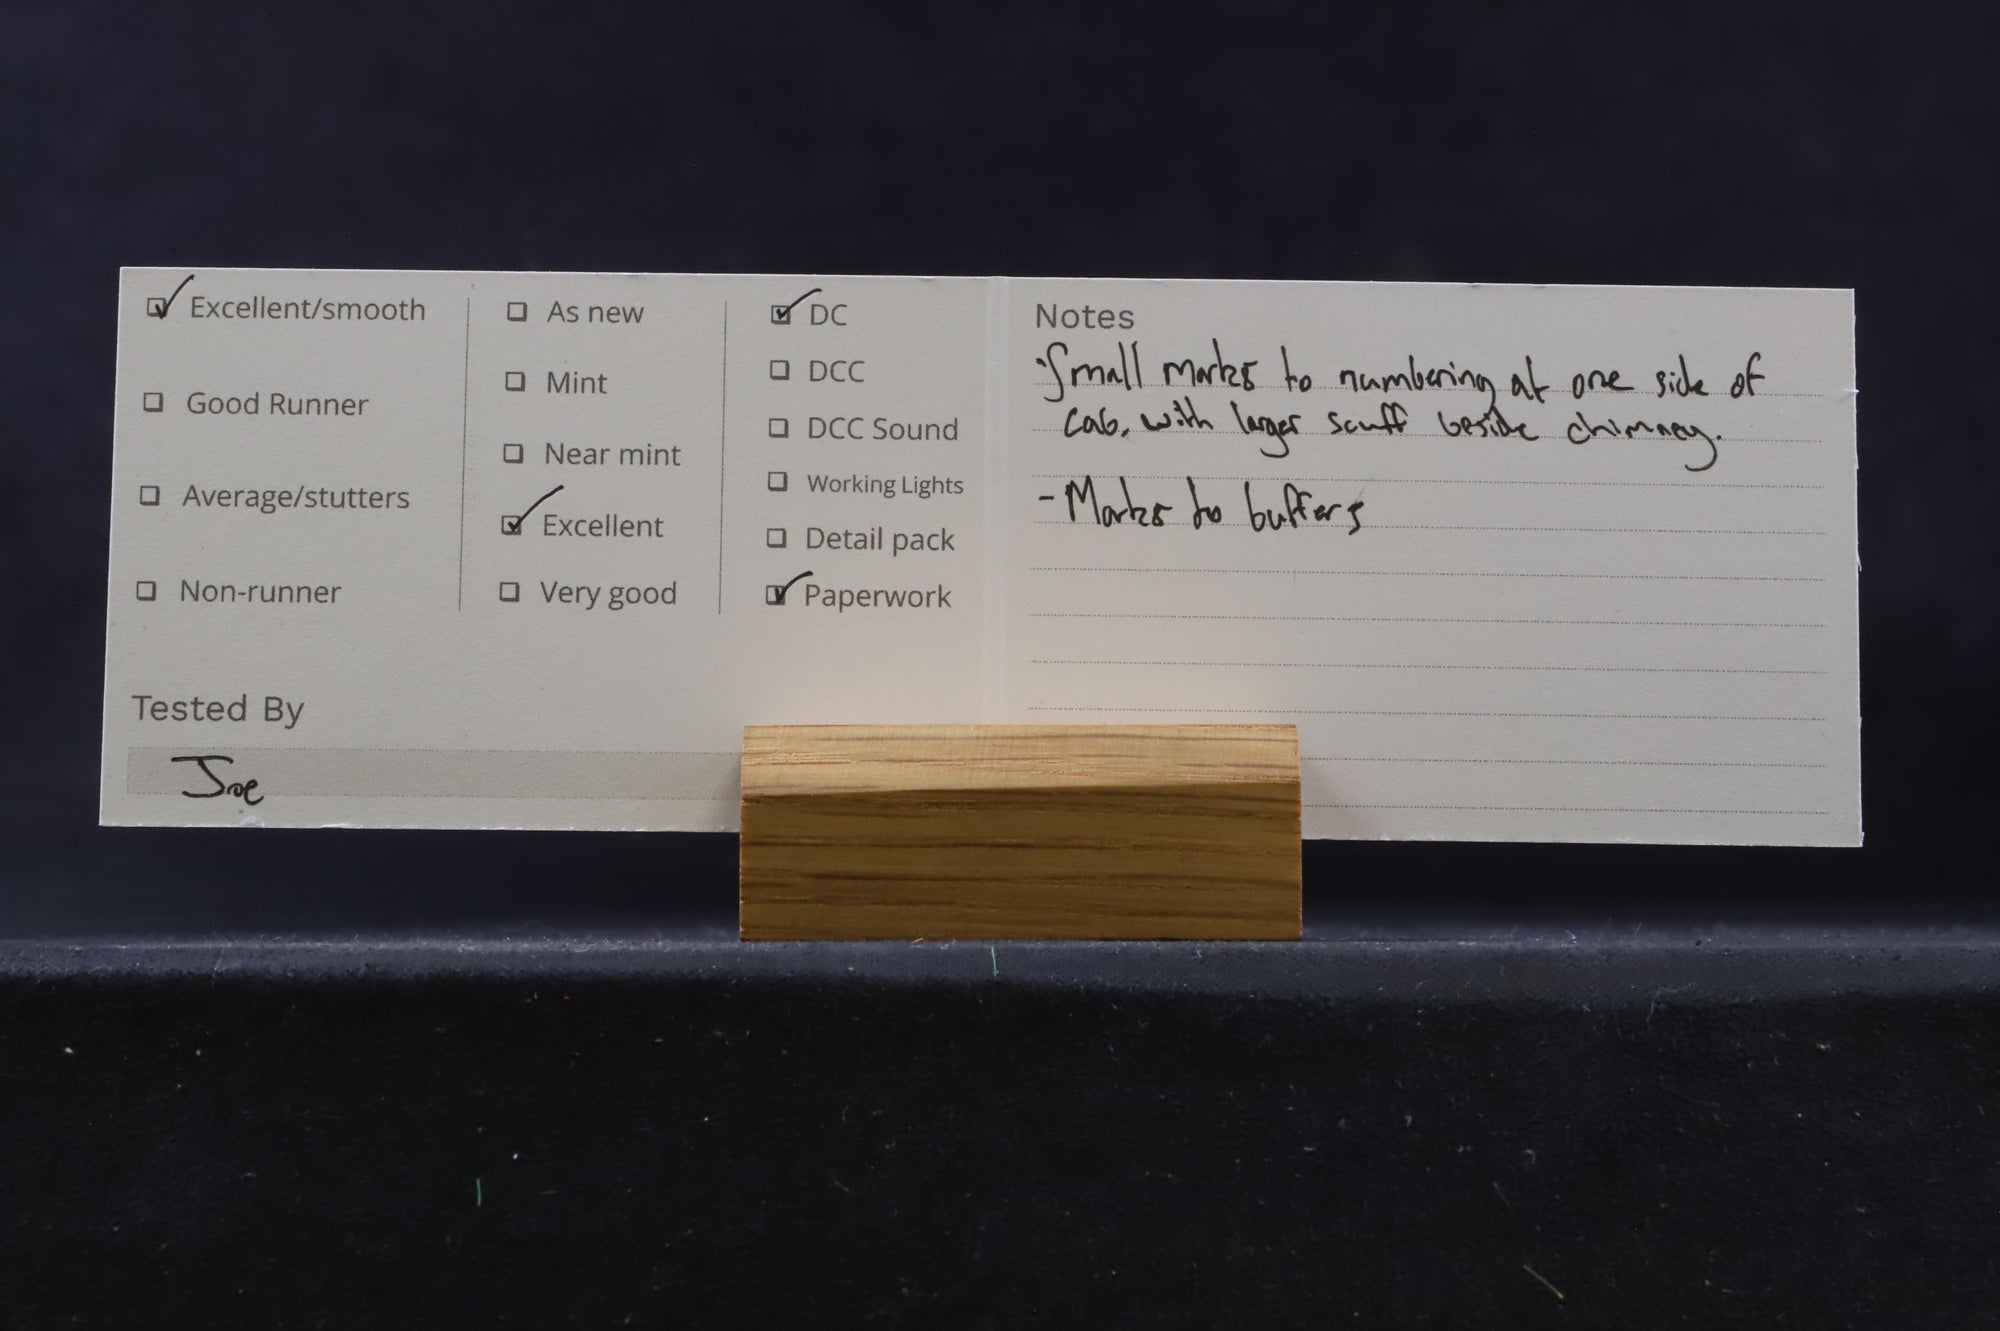 ☑ Excellent/smooth
☐ Good Runner
☐ Average/stutters
☐ Non-runner
☐ As new
☐ Mint
☐ Near mint
☑ Excellent
☐ Very good
☑ DC
☐ DCC
☐ DCC Sound
☐ Working Lights
☐ Detail pack
☑ Paperwork
Tested By
Joe
Notes
·Small marks to numbering at one side of
cab, with larger scuff beside chimney.
- Marks to buffers